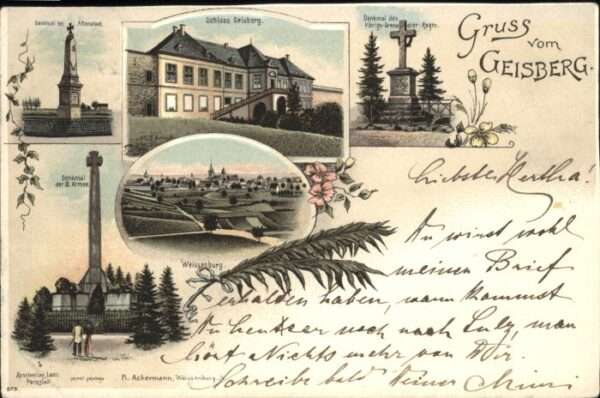 Denkmal bei Altenstadt.
Schloss Geisberg.
Denkmal des
Königs-Grenadier-Regts.
Gruss vom
GEISBERG.
Denkmal
der III. Armee.
Weissenburg.
Liebste Hertha!
Du wirst wohl
meinen Brief
erhalten haben, wann kommst
Du
noch nach Sulz, man
hört Nichts mehr von Dir.
Schreibe bald Deiner Mimi
R. Ackermann, Weissenburg